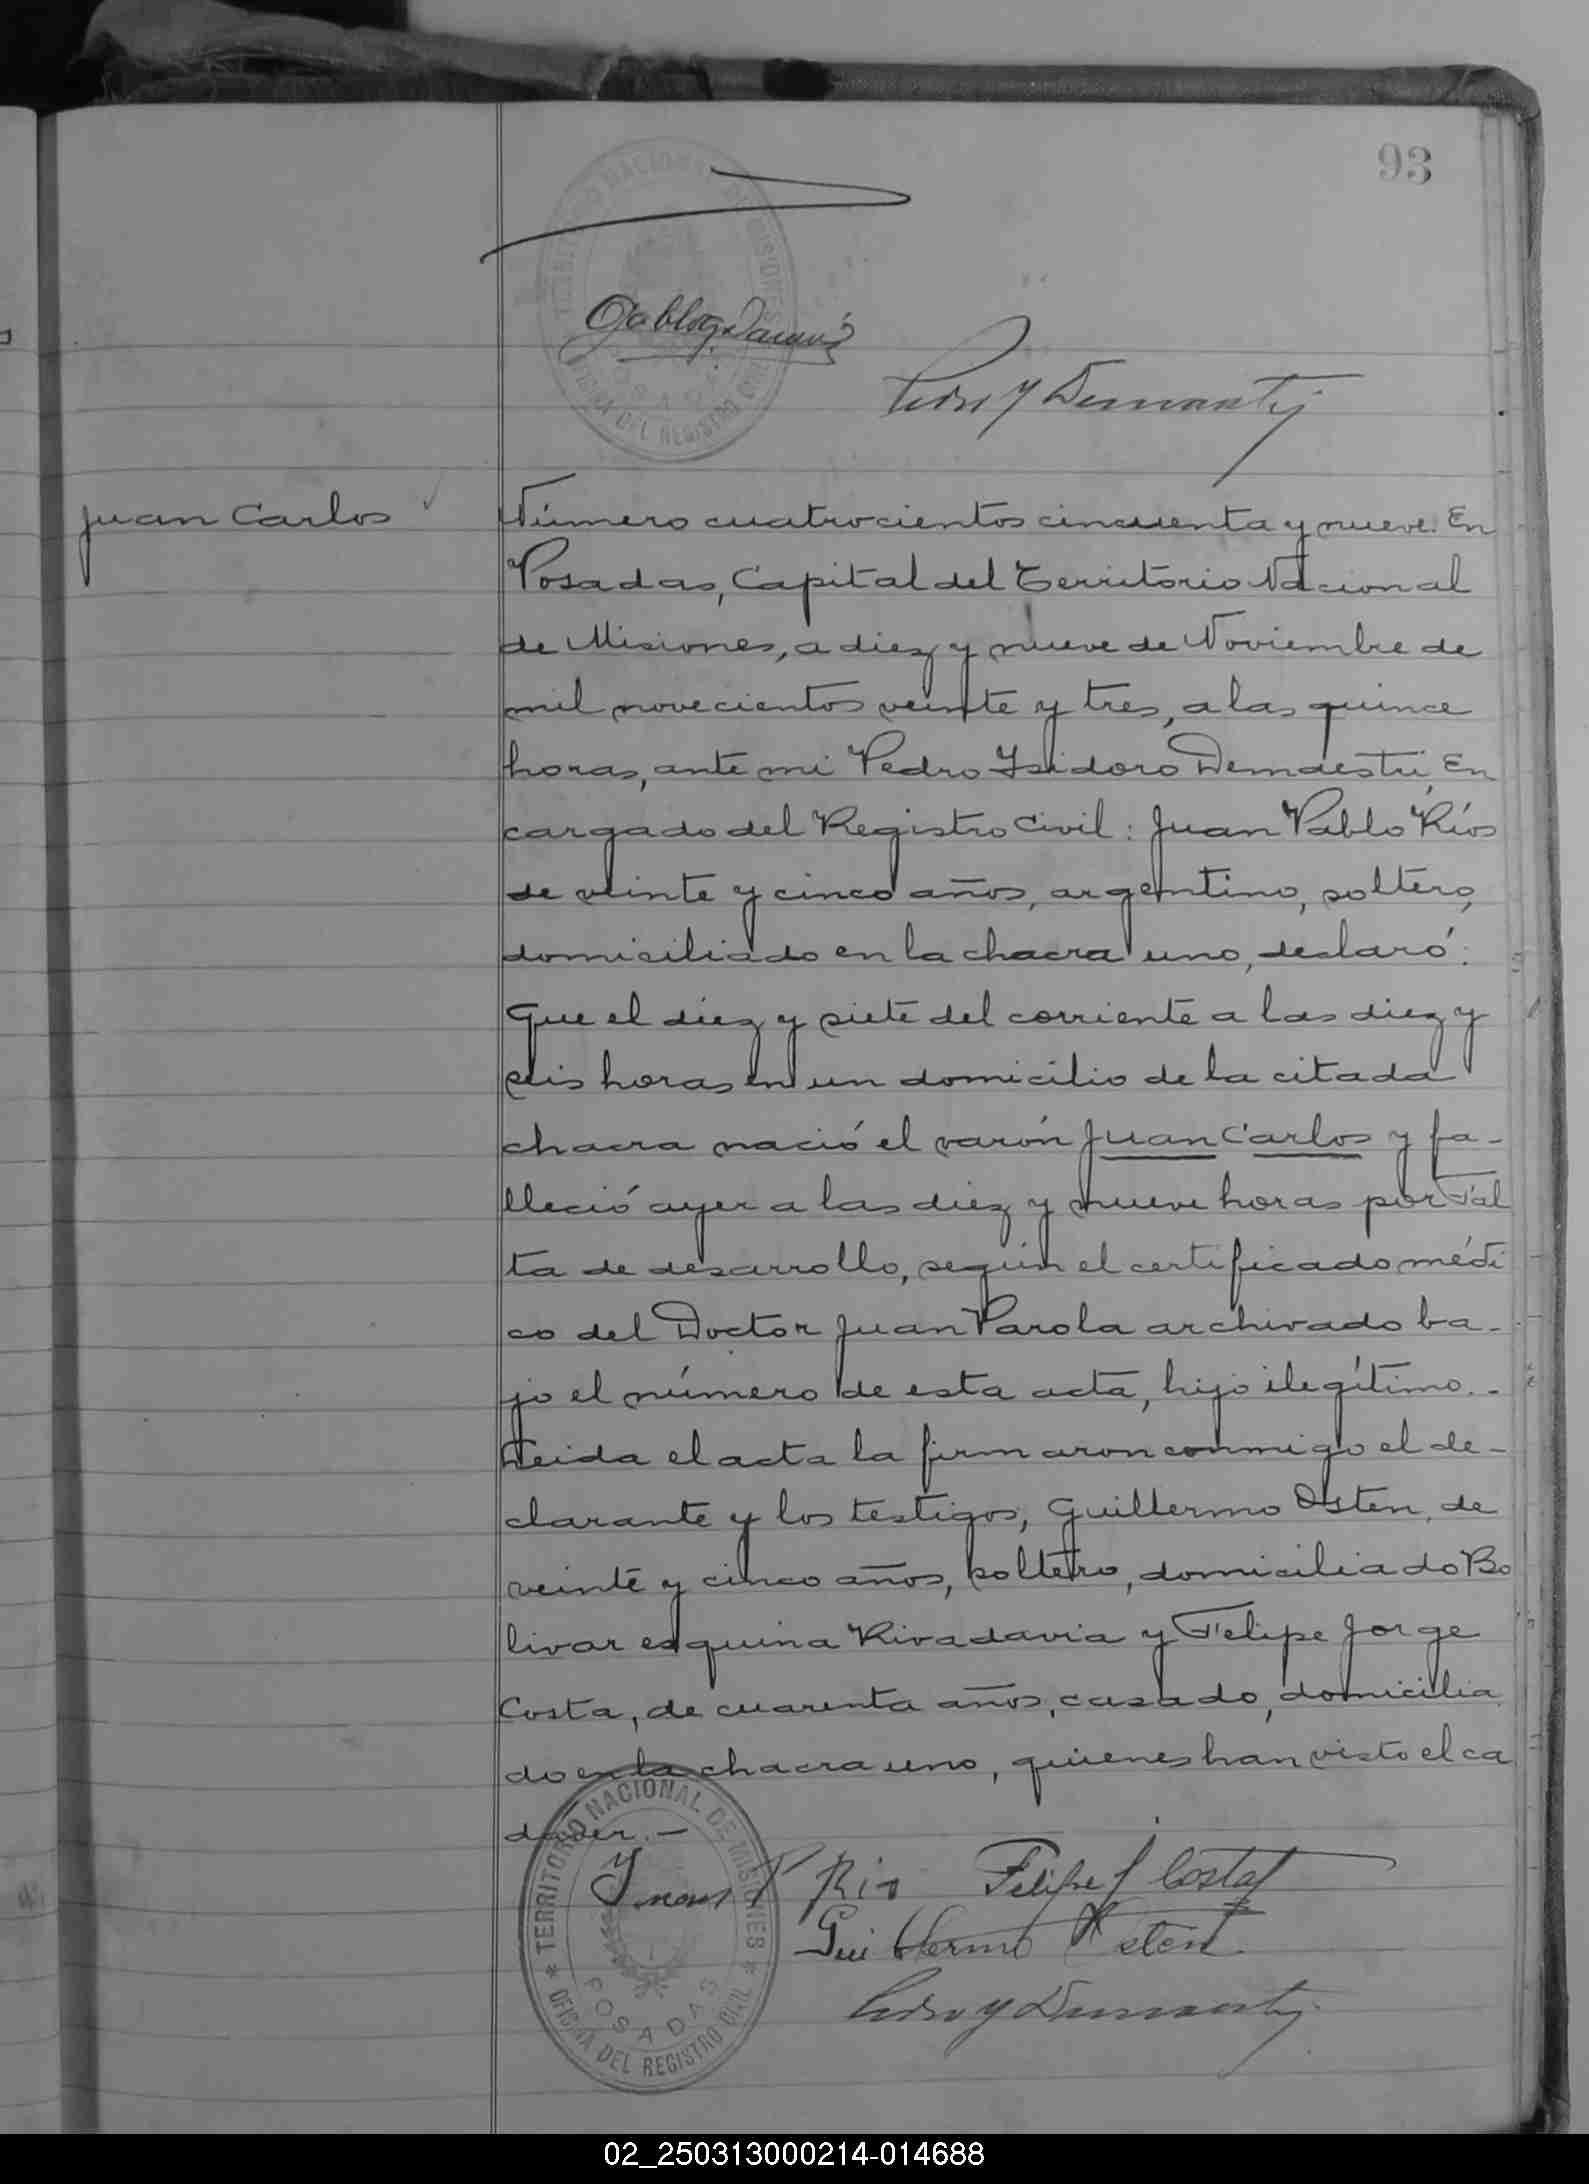 93
TERRITORIO NACIONAL DE MISIONES
POSADAS
OFICINA DEL REGISTRO CIVIL
Juan Carlos
Número cuatrocientos cincuenta y nueve. En
Posadas, Capital del Territorio Nacional
de Misiones, a diez y nueve de Noviembre de
mil novecientos veinte y tres, a las quince
horas, ante mi Pedro Ysidoro Demaestri, En
cargado del Registro Civil: Juan Pablo Ríos
de veinte y cinco años, argentino, soltero,
domiciliado en la chacra uno, declaró:
Que el diez y siete del corriente a las diez y
seis horas en un domicilio de la citada
chacra nació el varón Juan Carlos y fa-
lleció ayer a las diez y nueve horas por fal
ta de desarrollo, según el certificado médi
co del Doctor Juan Parola archivado ba-
jo el número de esta acta, hijo ilegítimo.-
Leida el acta la firmaron conmigo el de-
clarante y los testigos, Guillermo Osten, de
veinte y cinco años, soltero, domiciliado Bo
livar esquina Rivadavia y Felipe Jorge
Costa, de cuarenta años, casado, domicilia
do en la chacra uno, quienes han visto el ca
daver.-
Juan P Rios Felipe J Costa
Guillermo Osten
Pedro Y Demaestri
TERRITORIO NACIONAL DE MISIONES
POSADAS
OFICINA DEL REGISTRO CIVIL
02_250313000214-014688